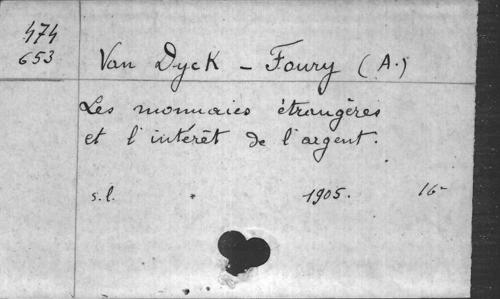 474
653
Van Dyck - Foury (A.)
Les monnaies étrangères
et l'intérêt de l'argent.
s.l. 1905. 16-